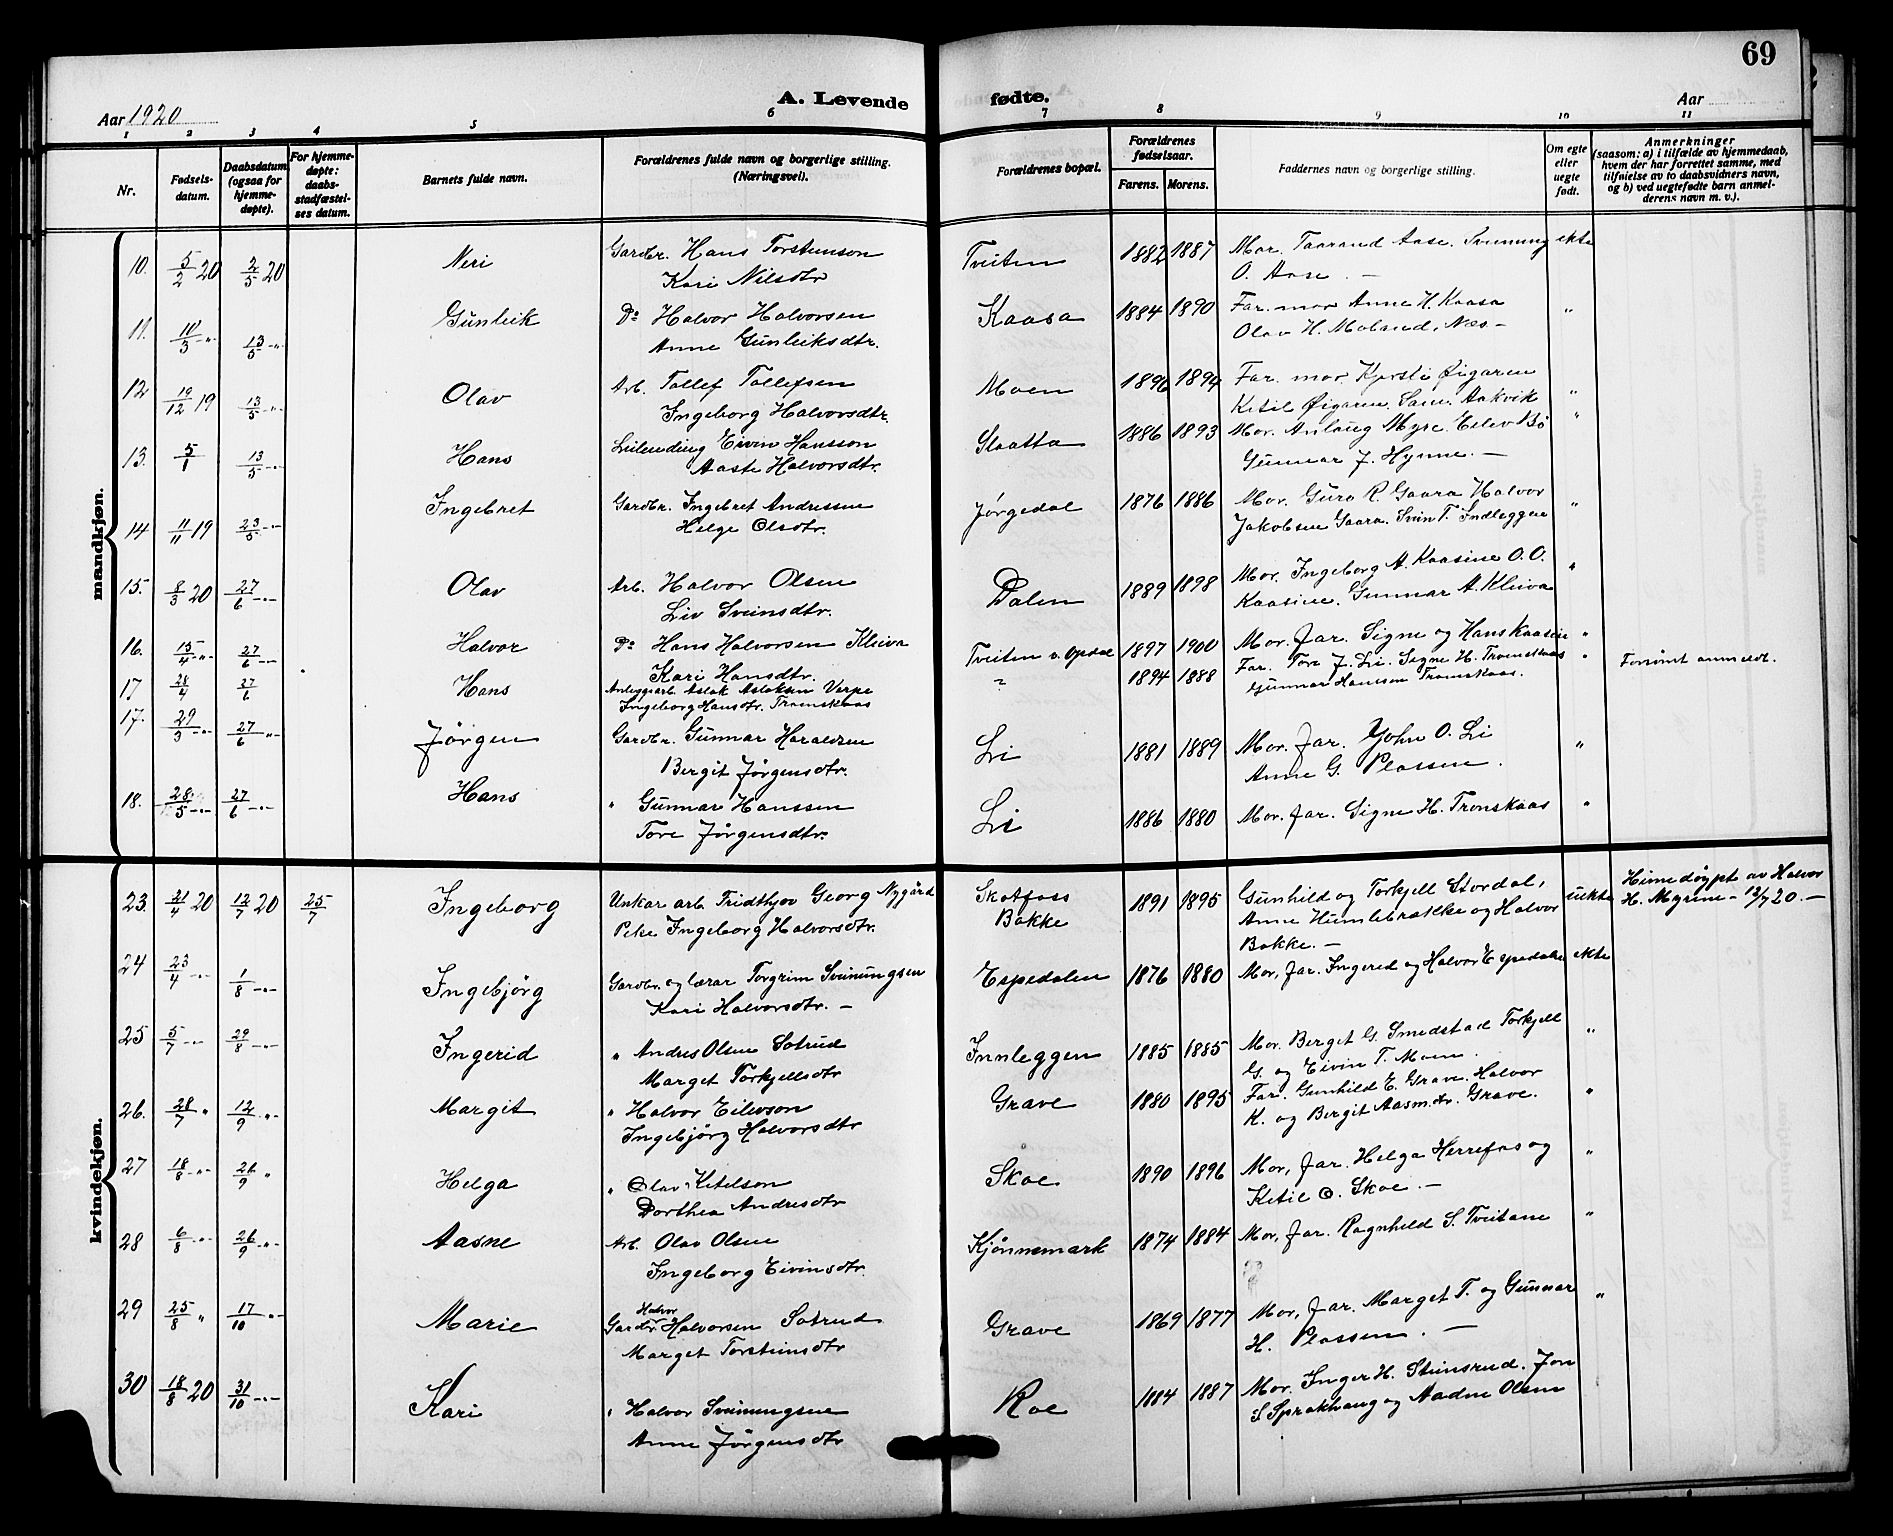 69
Aar 1920
A. Levende fødte.
Aar
1 2 3 4 5 6 7 8 9 10 11
Nr.
Fødsels-
datum.
Daabsdatum
(ogsaa for
hjemme-
døpte).
For hjemme-
døpte:
daabs-
stadfæstel-
ses datum.
Barnets fulde navn.
Forældrenes fulde navn og borgerlige stilling.
(Næringsvei).
Forældrenes bopæl.
Forældrenes
fødselsaar.
Farens. Morens.
Faddernes navn og borgerlige stilling.
Om egte
eller
uegte
født.
Anmerkninger
(saasom: a) i tilfælde av hjemmedaab,
hvem der har forrettet samme, med
tilføielse av to daabsvidners navn,
og b) ved uegtefødte barn anmel-
derens navn m. v.).
mandkjøn.
10. 5/2 20 2/5 20 Neri Gardbr. Hans Torsteinson Tveiten 1882 1887 Mor. Taarand Aase. Sveinung ekte
Kari Nilsdtr O. Aase. —
11. 10/3 -"- 13/5 -"- Gunleik Do Halvor Halvorsen Kaasa 1884 1890 Far. mor Anne H. Kaasa "
Anne Gunleiksdtr. Olav H. Moland, Næs —
12 19/12 19 13/5 -"- Olav Arb. Tollef Tollefsen Moen 1896 1894 Far. mor. Kjersti Øigaren "
Ingeborg Halvorsdtr. Ketil Øigaren. Sam. Aakvik
13. 5/1 13/5 -"- Hans Leilending Eivin Hansson Slaatta 1886 1893 Mor. Anlaug Myre Eilev Bö "
Aaste Halvorsdtr. Gunnar J. Hynne. —
14 11/11 19 23/5 -"- Ingebret Gardbr. Ingebret Andressen Jørgedal 1876 1886 Mor. Guro R. Gaara Halvor "
Helge Olsdtr. Jakobsen Gaara. Svein T. Indleggen
15. 8/3 20 27/6 -"- Olav Arb. Halvor Olsen Dalen 1889 1898 Mor. Ingeborg A. Kaasine O. O. "
Liv Sveinsdtr. Kaasine. Gunnar A. Kleiva
16. 15/4 -"- 27/6 -"- Halvor Do Hans Halvorsen Kleiva Tveiten v. Opdal 1897 1900 Mor. far. Signe og Hans Kaasin "
Kari Hansdtr.
17 28/4 27/6 Hans Anleggsarb. Aslak Aslaksen Verpe " 1894 1888 Far. Tore J. Li. Signe H. Tromskaas " Forsömt anmeldt.
Ingeborg Hansdtr. Tromskaas Gunnar Hansson Tromskaas.
17. 29/3 -"- 27/6 -"- Jörgen Gardbr. Gunnar Haraldsen Li 1881 1889 Mor. far. John O. Li "
Bergit Jörgensdtr. Anne G. Plassen.
18. 28/5 -"- 27/6 -"- Hans " Gunnar Hanssen Li 1886 1880 Mor. far. Signe H. Tronskaas "
Tore Jörgensdtr.
kvindekjøn.
23. 21/4 20 12/7 20 25/7 Ingeborg Unkar arb Fridthjov Georg Nygård Skotfoss 1891 1895 Gunhild og Torkjell Stordal, uekte Heimedöypt av Halvor
Peke Ingeborg Halvorsdtr. Bakke Anne Humlebrække og Halvor H. Myrene - 12/7 20. —
Bakke. —
24 23/4 -"- 1/8 -"- Ingebjörg Gardbr. og lærar Torgrim Sveinungsen Espedalen 1876 1880 Mor, far. Ingerid og Halvor Espedalen ekte
Kari Halvorsdtr. —
25 5/7 -"- 29/8 -"- Ingerid " Andres Olsen Sotrud Innleggen 1885 1885 Mor. Berget G. Smedstad Torkjell "
Marget Torkjellsdtr G. og Eivin T. Moen.
26. 28/7 " 12/9 " Margit " Halvor Eilevson Grave 1880 1895 Far. Gunhild E. Grave. Halvor "
Ingebjörg Halvorsdtr K. og Bergit Aasm.dtr. Grave.
27 18/8 -"- 26/9 " Helga " Olav Ketelson Skoe 1890 1896 Mor, far. Helga Herrefos og "
Dorthea Andresdtr Ketil O. Skoe. —
28 6/8 -"- 26/9 -"- Aasne Arb. Olav Olsen Kjönnemark 1874 1884 Mor, far. Ragnhild S. Tveitane "
Ingeborg Eivinsdtr.
29 25/8 " 17/10 -"- Marie Gardbr. Halvor Halvorsen Sotrud Grave 1869 1877 Mor, far. Marget T. og Gunnar "
Marget Torsteinsdtr H. Plassen. —
30 18/8 20 31/10 -"- Kari " Halvor Sveinungsen Roe 1884 1887 Mor. Inger H. Steinsrud. Jon
Anne Jörgensdtr S Sprakhaug og Aadne Olsen